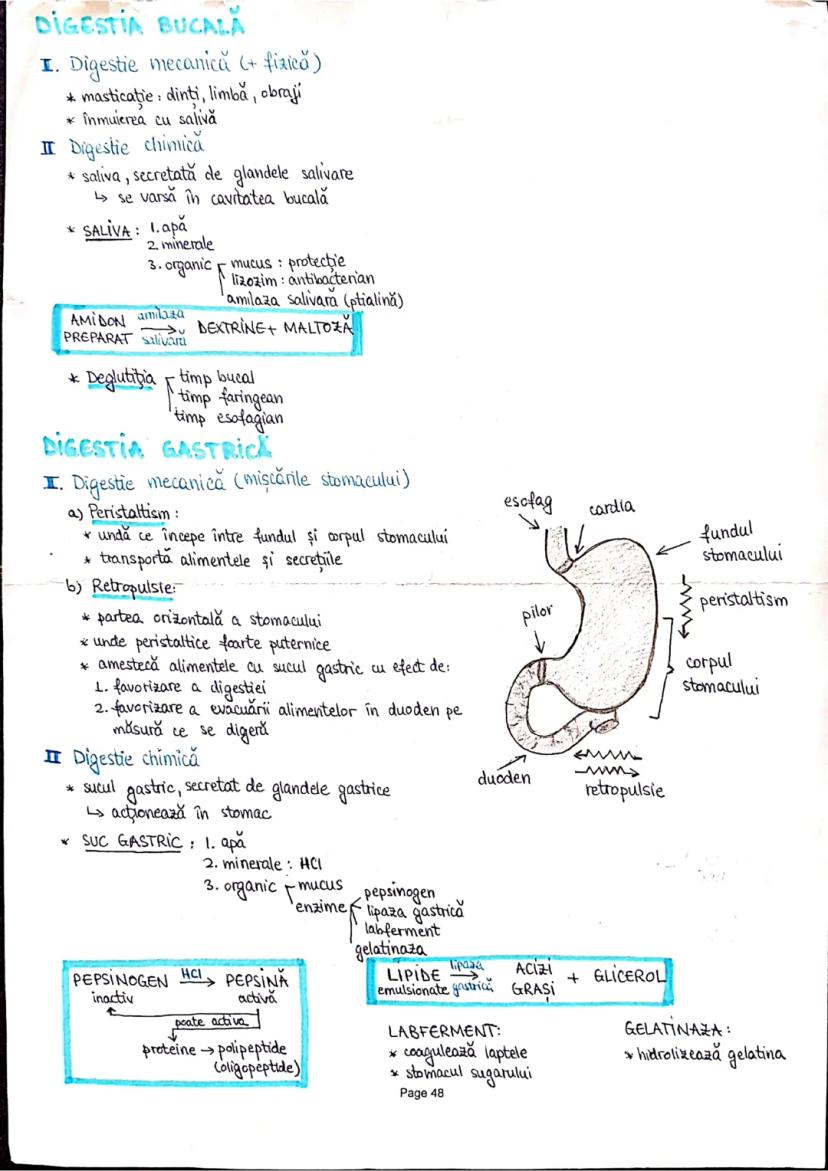 DIGESTIA BUCALĂ
I. Digestie mecanică (+ fizică)
* masticație: dinți, limbă, obraji
* înmuierea cu salivă
II Digestie chimică
* saliva, secretată de glandele salivare
↳ se varsă în cavitatea bucală
* SALIVA: 1. apă
2. minerale
3. organic mucus: protecție
lizozim: antibacterian
amilaza salivară (ptialină)
AMIDON PREPARAT amilaza salivară → DEXTRINE + MALTOZĂ
* Deglutiția timp bucal
timp faringean
timp esofagian
DIGESTIA GASTRICĂ
I. Digestie mecanică (mișcările stomacului)
a) Peristaltism:
* undă ce începe între fundul și corpul stomacului
* transportă alimentele și secrețiile
b) Retropulsie:
* partea orizontală a stomacului
* unde peristaltice foarte puternice
* amestecă alimentele cu sucul gastric cu efect de:
1. favorizare a digestiei
2. favorizare a evacuării alimentelor în duoden pe
măsură ce se digeră
esofag
cardia
fundul
stomacului
peristaltism
pilor
corpul
stomacului
duoden
retropulsie
II Digestie chimică
* sucul gastric, secretat de glandele gastrice
↳ acționează în stomac
* SUC GASTRIC: 1. apă
2. minerale: HCl
3. organic mucus
enzime pepsinogen
lipaza gastrică
labferment
gelatinaza
PEPSINOGEN HCl → PEPSINĂ
inactiv activă
poate activa
proteine → polipeptide
(oligopeptide)
LIPIDE emulsionate lipaza gastrică → ACIZI GRAȘI + GLICEROL
LABFERMENT:
* coagulează laptele
* stomacul sugarului
GELATINAZA:
* hidrolizează gelatina
Page 48